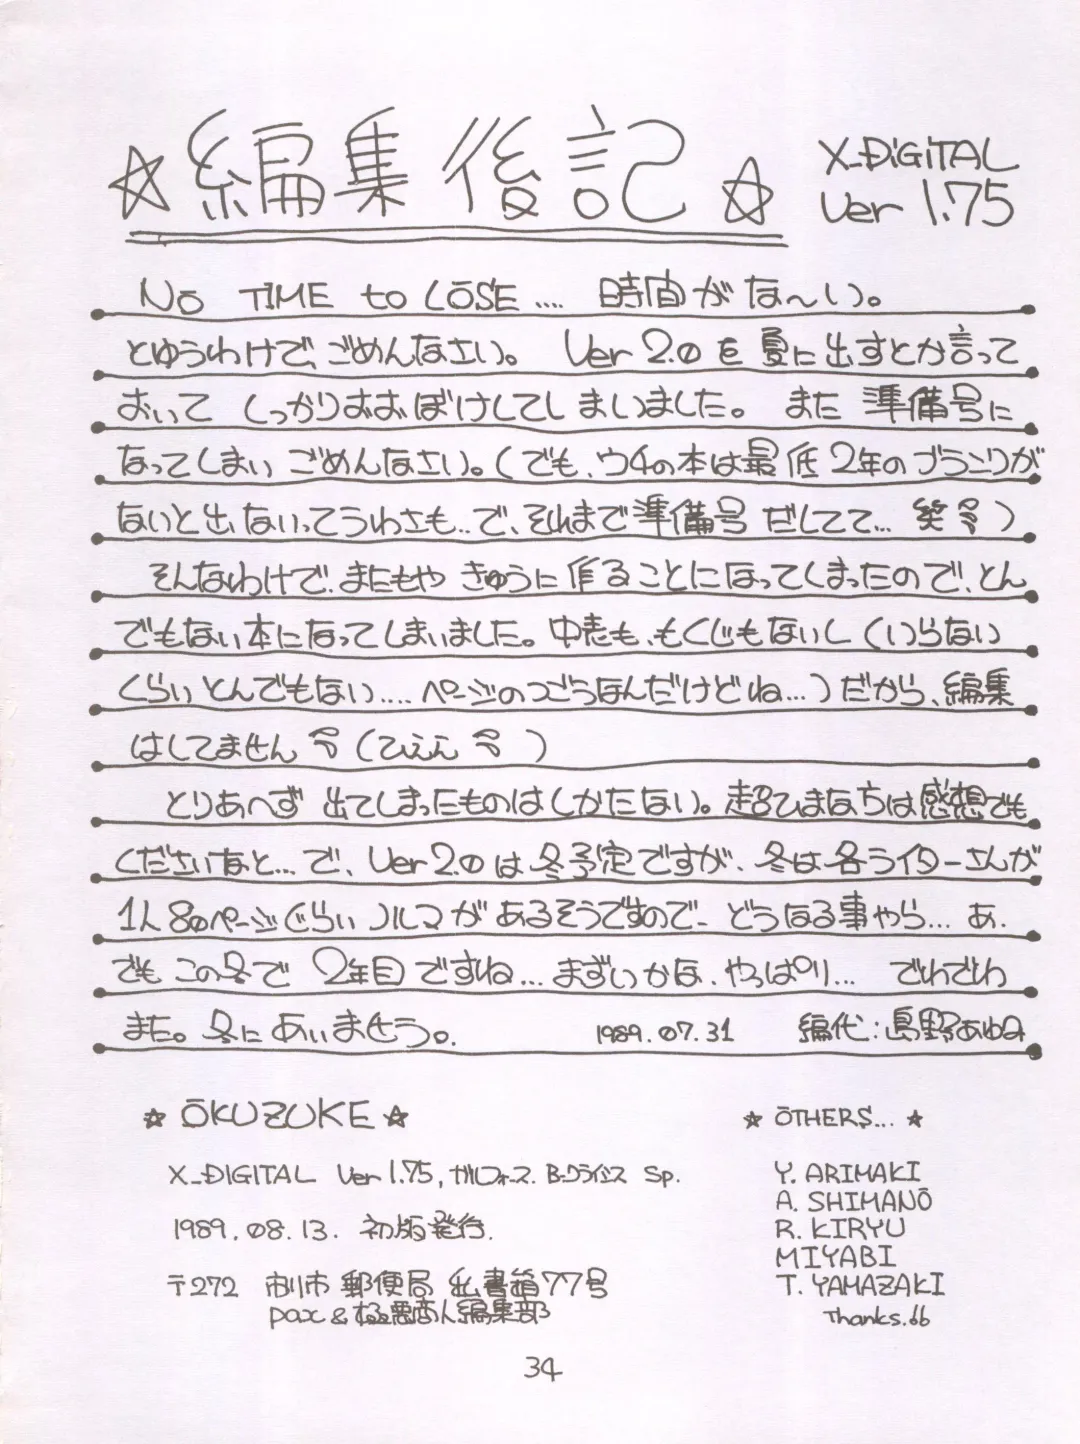 ☆編集後記☆
X_DiGiTAL
Ver 1.75
NO TIME to LOSE.... 時間がな〜い。
とゆうわけで、ごめんなさい。 Ver 2.0 を夏に出すとか言って
おいて しっかりおおぼけしてしまいました。 また 準備号に
なってしまい ごめんなさい。(でも、ウチの本は最低2年のブランクが
ないと出ないってうわさも..で、それまで準備号だしてて... 笑 )
そんなわけで、またもや きゅうに作ることになってしまったので、とん
でもない本になってしまいました。中表も、もくじもないし(いらない
くらいとんでもない....ページのつごうなんだけどね...)だから、編集
はしてません (ひええ )
とりあへず 出てしまったものはしかたない。超ひまな方は感想でも
くださいなと...で、Ver 2.0 は冬予定ですが、冬は各ライターさんが
1人80ページぐらいノルマがあるそうですので、どうなる事やら... あ、
でも この冬で 2年目ですね...まずいかな、やっぱり... でわでわ
また。冬にあいませう。 1989.07.31 編代:島野あゆみ
☆ OKUZUKE ☆
X_DIGITAL Ver 1.75, ガルフォース. B-クライシス Sp.
1989.08.13. 初版発行.
〒272 市川市 郵便局 私書箱77号
pax & 極悪商人編集部
☆ OTHERS... ☆
Y. ARIMAKI
A. SHIMANO
R. KIRYU
MIYABI
T. YAMAZAKI
Thanks.
34